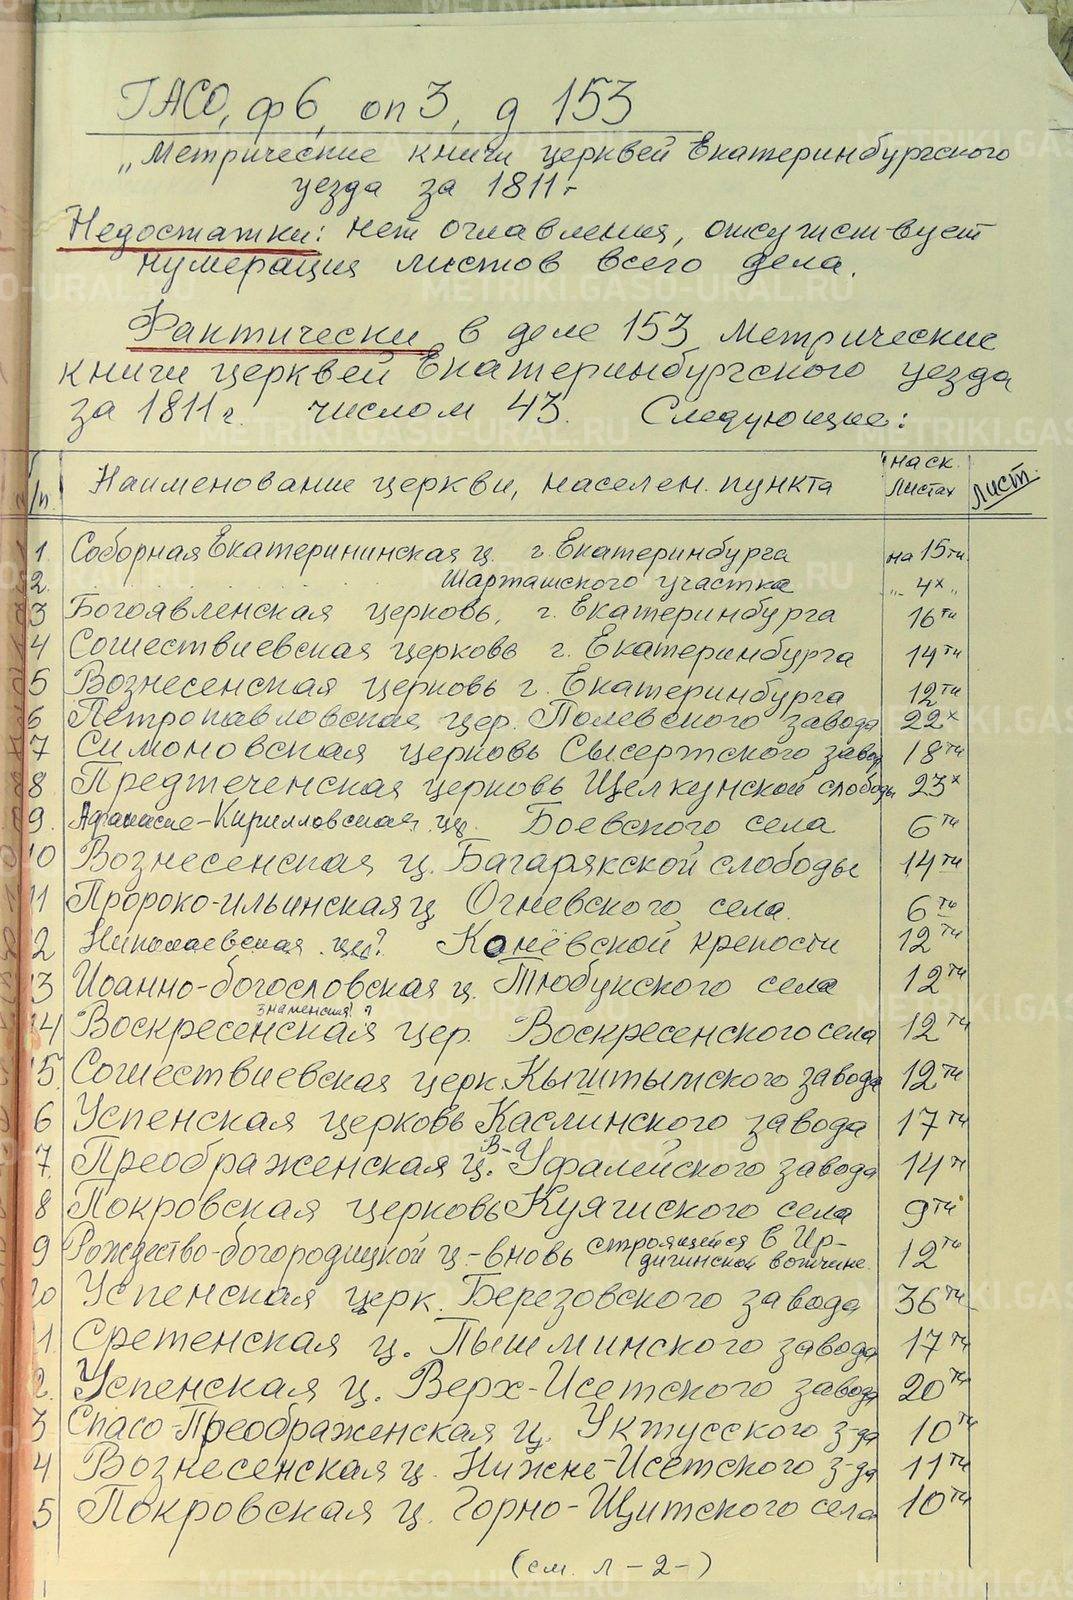 ГАСО, ф 6, оп 3, д 153
„Метрические книги церквей Екатеринбургского
уезда за 1811 г
Недостатки: нет оглавления, отсутствует
нумерация листов всего дела.
Фактически в деле 153 метрические
книги церквей Екатеринбургского уезда
за 1811 г. числом 43. Следующие:
/п. Наименование церкви, населен. пункта на ск. листах лист.
1. Соборная Екатерининская ц. г. Екатеринбурга на 15ти
2. Шарташского участка -"- 4х -"-
3 Богоявленская церковь, г. Екатеринбурга 16ти
4 Сошествиевская церковь г. Екатеринбурга 14ти
5 Вознесенская церковь г. Екатеринбурга 12ти
6 Петропавловская цер. Полевского завода 22х
7 Симоновская церковь Сысертского завод 18ти
8 Предтеченская церковь Щелкунской слободы 23х
9. Афанасие-Кирилловская цц. Боевского села 6ти
10 Вознесенская ц. Багарякской слободы 14ти
11 Пророко-ильинская ц Огневского села. 6ти
2 Николаевская цер? Конёвской крепости 12ти
3 Иоанно-богословская ц. Тюбукского села 12ти
знаменская?
14 Воскресенская цер. Воскресенского села 12ти
5. Сошествиевская церк. Кыштымского завода 12ти
6 Успенская церковь Каслинского завода 17ти
7. Преображенская ц. В-Уфалейского завода 14ти
8 Покровская церковь Куяшского села 9ти
9 Рождество-богородицкой ц-вновь строящейся в Ир-
дигинской вотчине. 12ти
20 Успенская церк. Березовского завода 36ти
1. Сретенская ц. Пышминского завода 17ти
2. Успенская ц. Верх-Исетского завода 20ти
3 Спасо-Преображенская ц. Уктусского з-да 10ти
4 Вознесенская ц. Нижне-Исетского з-да 11ти
5 Покровская ц. Горно-Щитского села 10ти
(см. л - 2 -)
METRIKI.GASO-URAL.RU